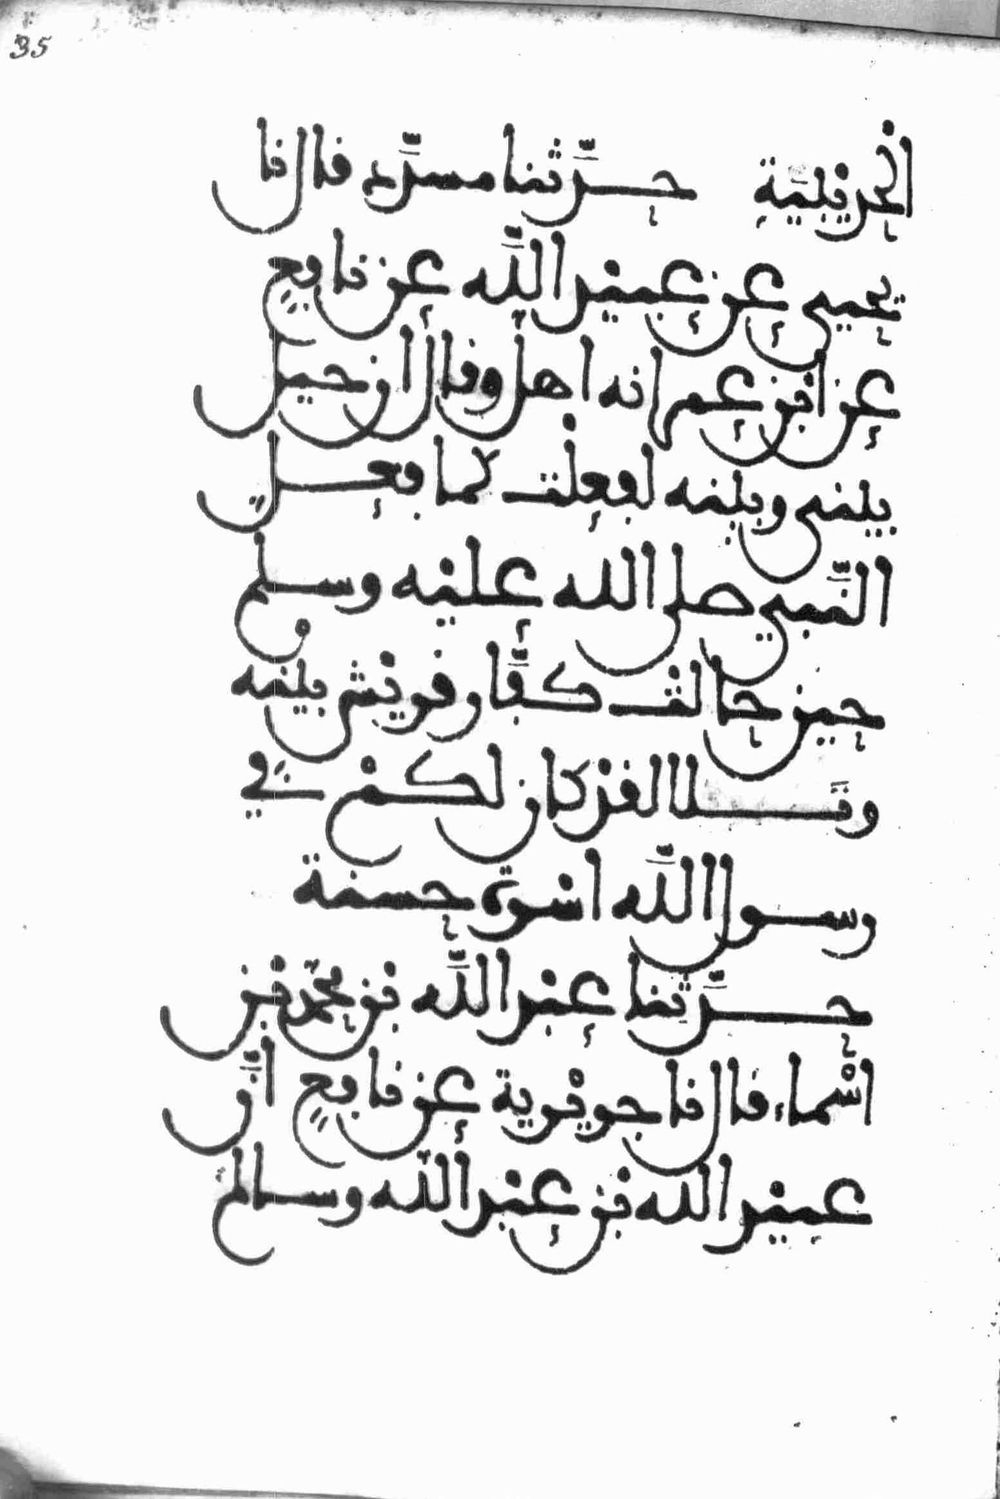 35
الْحُدَيْبِيَةِ حَدَّثنا مسدَّد قال نا
يحيى عن عبيد اللَّه عن نافع
عن ابن عمر انه أهل وقال ان حيل
بيني وبينه لفعلت كما فعل
النَّبي صلى الله عليه وسلم
حين حالت كفَّار قريش بينه
وتَلا لقدْ كان لكمْ في
رسول اللَّه اسْوة حسنة
حدَّثنا عبد اللَّه بن محمد بن
اسْماء قال نا جويرية عن نافع أنَّ
عبيد الله بن عبد اللَّه وسالم